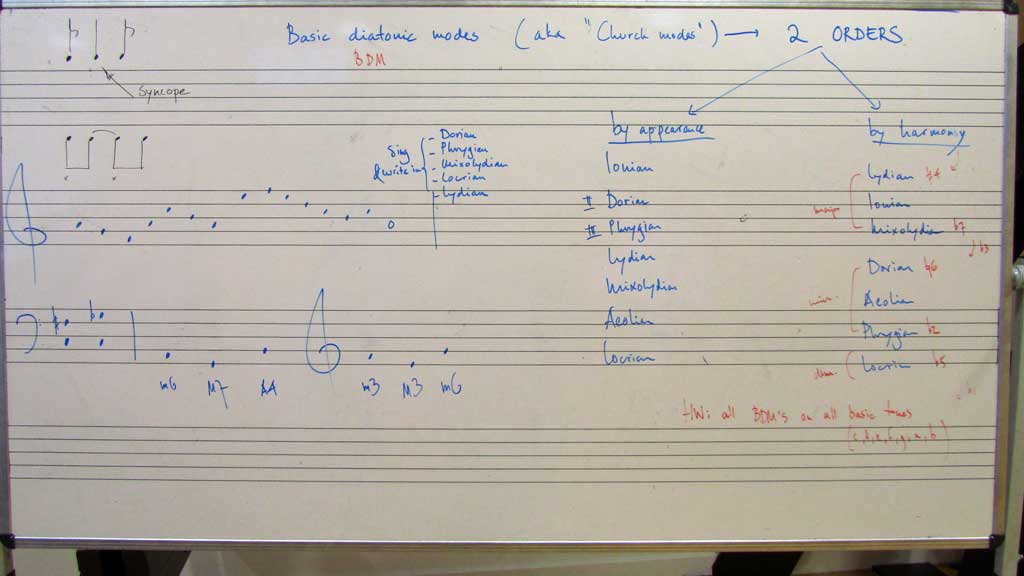 Basic diatonic modes (aka "Church modes") → 2 ORDERS
BDM
Syncope
Sing & write in
- Dorian
- Phrygian
- Mixolydian
- Locrian
- Lydian
by appearance
Ionian
II Dorian
III Phrygian
Lydian
Mixolydian
Aeolian
Locrian
by harmony
Lydian ♮4
Ionian
Mixolydian ♭7
♭3
Dorian ♮6
Aeolian
Phrygian ♭2
Locrian ♭5
m6 M7 A4 m3 M3 m6
HW: all BDM's on all basic tones
(c, d, e, f, g, a, b)